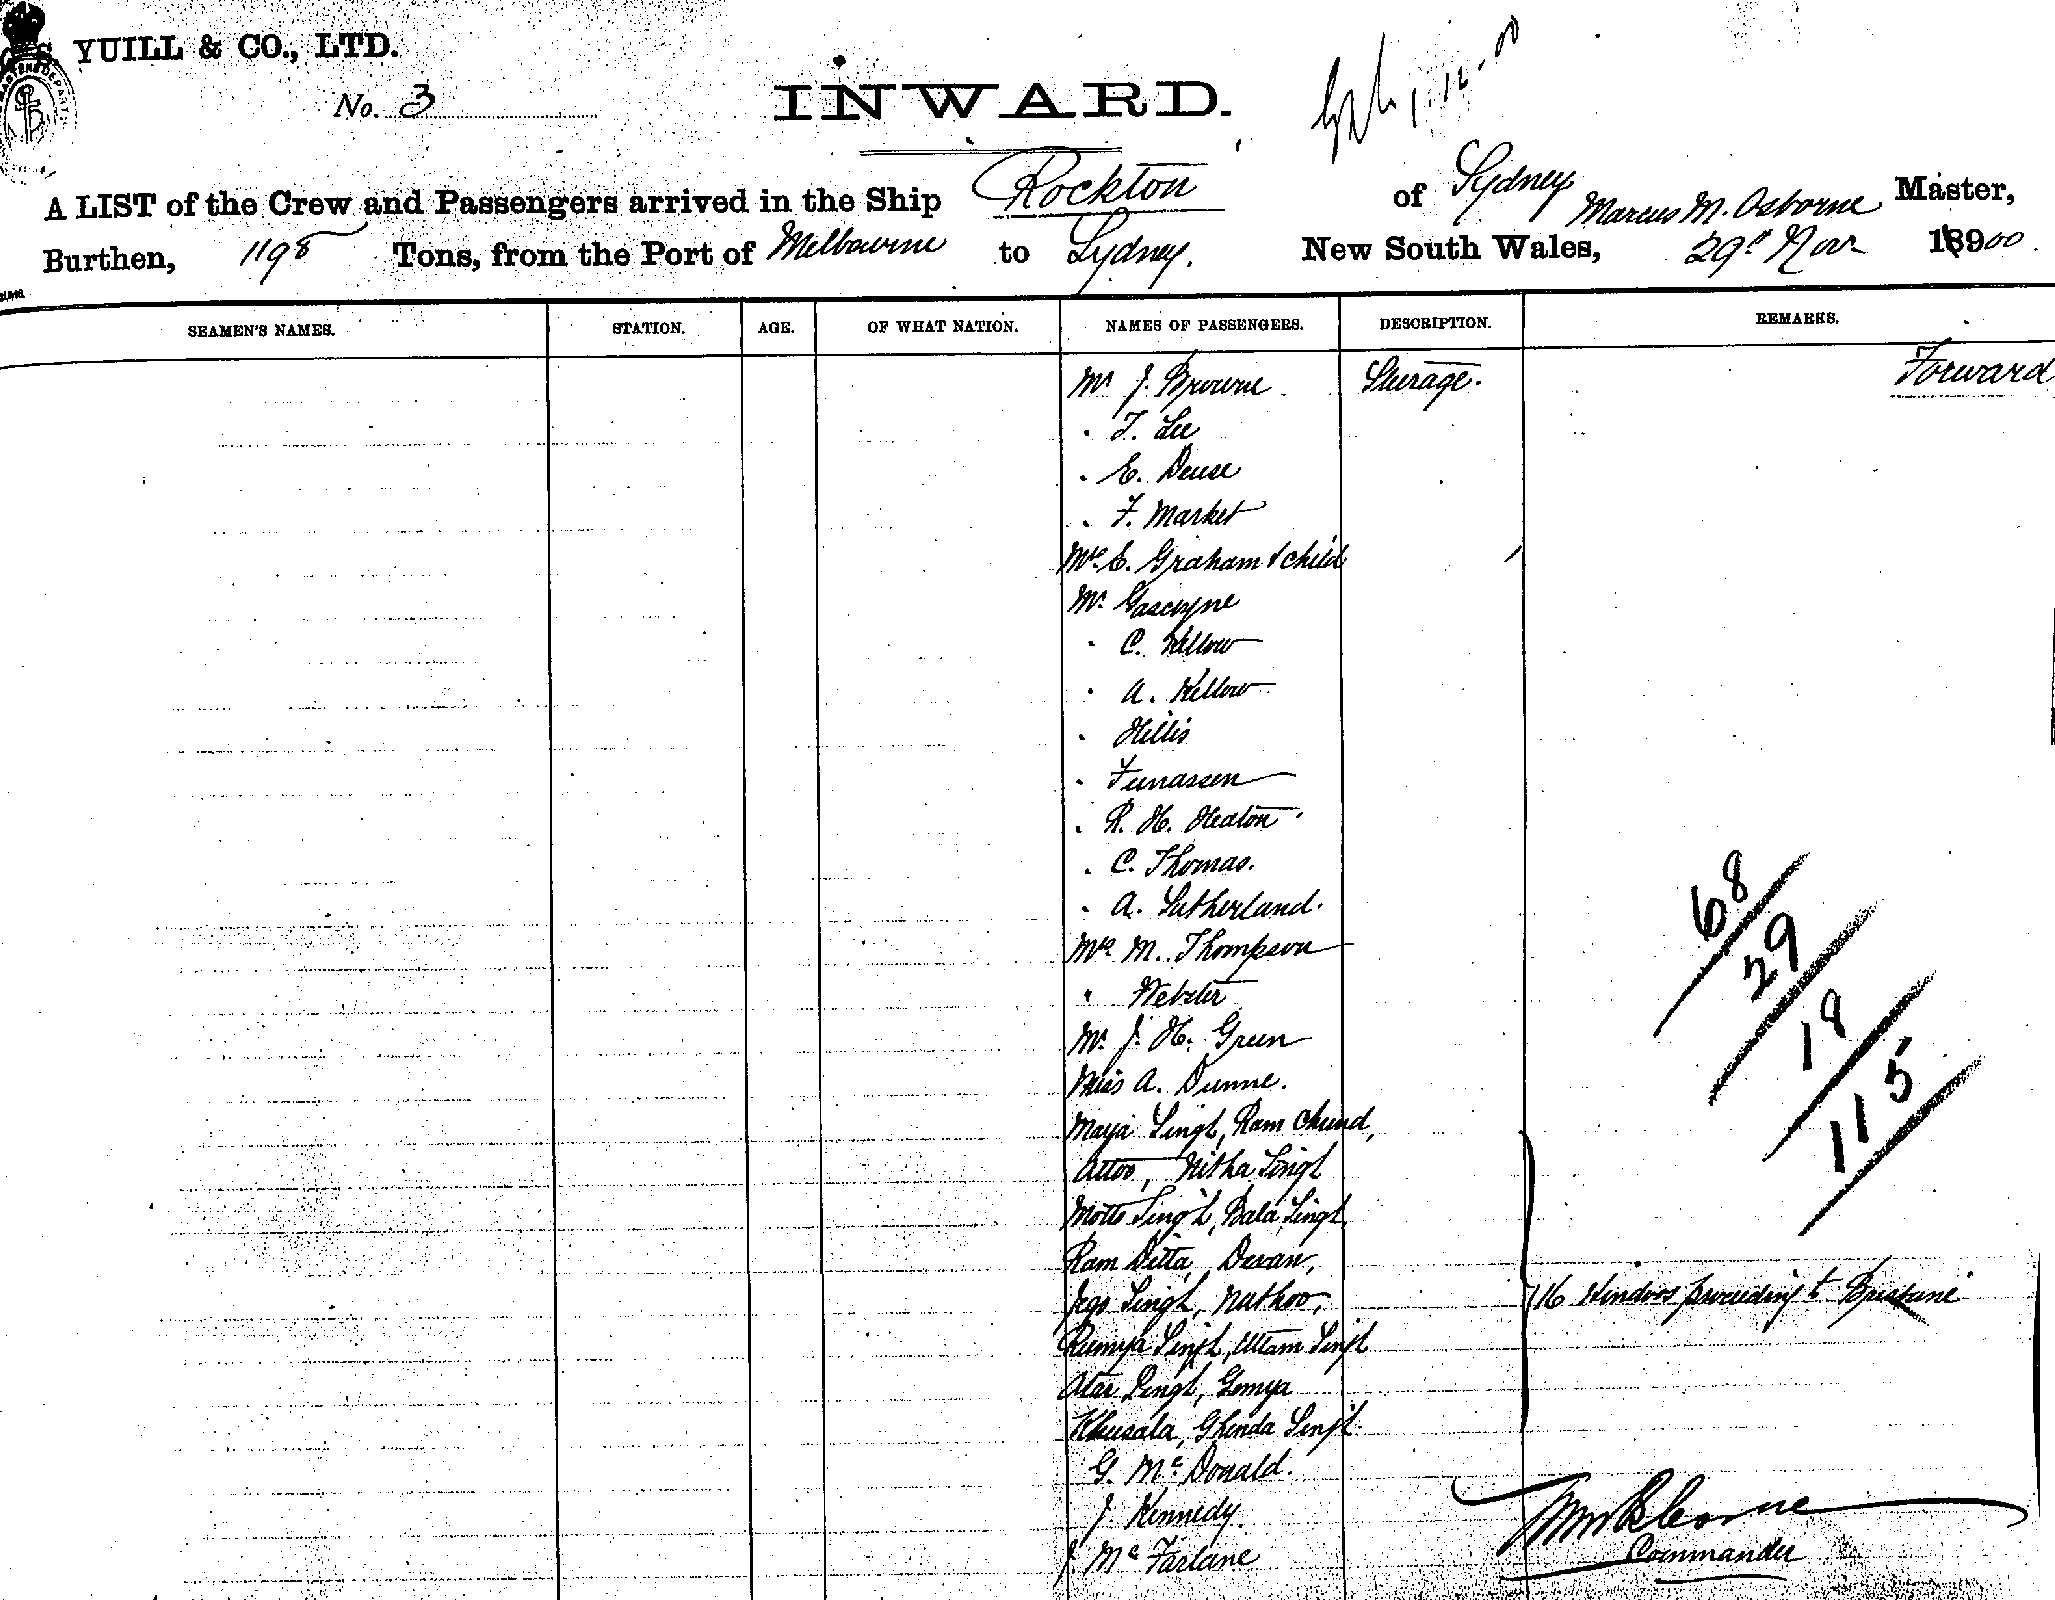 YUILL & CO., LTD.
No. 3
INWARD.
1-12-00
A LIST of the Crew and Passengers arrived in the Ship Rockton of Sydney Marcus M. Osborne Master,
Burthen, 1198 Tons, from the Port of Melbourne to Sydney. New South Wales, 29th Novr 1900.
SEAMEN'S NAMES. STATION. AGE. OF WHAT NATION. NAMES OF PASSENGERS. DESCRIPTION. REMARKS.
Forward
Mr J. Browne Steerage.
" T. Lee
" E. Deuse
" F. Market
Mrs E. Graham & child
Mr Gascoyne
" C. Kellow
" A. Kellow
" Hillis
" Funassen
" R. H. Heaton
" C. Thomas.
" A. Sutherland.
Mrs M. Thompson
" Webster
Mr. J. H. Green
Miss A. Dunne.
Maya Singh, Ram Chund,
Attoo, Nitha Singh
Motto Singh, Bala Singh
Ram Ditta, Devan,
Jego Singh, Nathoo,
16 Hindoos proceeding to Brisbane
Rumya Singh, Uttam Singh
Atar Singh, Gomya
Khusala, Ghinda Singh
G. McDonald.
J. Kennedy.
J. McFarlane
68
29
18
115
MMOsborne
Commander